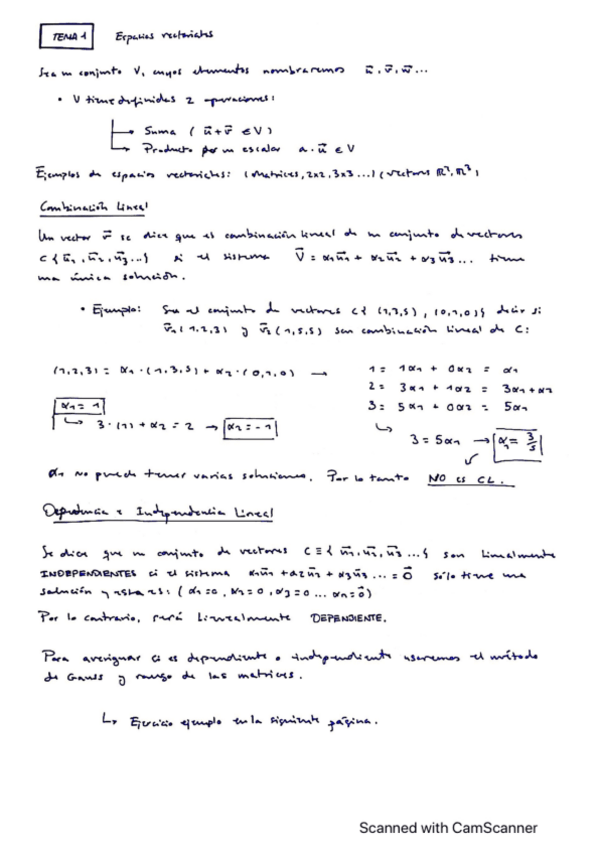 TEMA 1 Espacios vectoriales
Sea un conjunto V, cuyos elementos nombraremos u⃗, v⃗, w⃗...
• V tiene definidas 2 operaciones:
→ Suma ( u⃗+v⃗ ∈ V )
→ Producto por un escalar a·u⃗ ∈ V
Ejemplos de espacios vectoriales: (Matrices, 2x2, 3x3...) (vectores ℝ², ℝ³)
Combinación Lineal
Un vector v⃗ se dice que es combinación lineal de un conjunto de vectores
C { u⃗1, u⃗2, u⃗3...} si el sistema V⃗ = α1u⃗1 + α2u⃗2 + α3u⃗3... tiene
una única solución.
• Ejemplo: Sea el conjunto de vectores C{ (1,3,5), (0,1,0)} decir si
v⃗1(1,2,3) y v⃗2(1,5,5) son combinación lineal de C:
(1,2,3) = α1·(1,3,5) + α2·(0,1,0) →
1 = 1α1 + 0α2 = α1
2 = 3α1 + 1α2 = 3α1+α2
3 = 5α1 + 0α2 = 5α1
α1 = 1
↳ 3·(1) + α2 = 2 → α2 = -1
↳ 3 = 5α1 → α1 = 3/5
α1 no puede tener varias soluciones. Por lo tanto NO es CL.
Dependencia e Independencia Lineal
Se dice que un conjunto de vectores C ≡ { u⃗1, u⃗2, u⃗3 ...} son linealmente
INDEPENDIENTES si el sistema α1u⃗1 + α2u⃗2 + α3u⃗3 ... = 0⃗ sólo tiene una
solución y esta es: ( α1=0, α2=0, α3=0 ... αn=0⃗)
Por lo contrario, será Linealmente DEPENDIENTE.
Para averiguar si es dependiente o independiente usaremos el método
de Gauss y rango de las matrices.
↳ Ejercicio ejemplo en la siguiente página.
Scanned with CamScanner